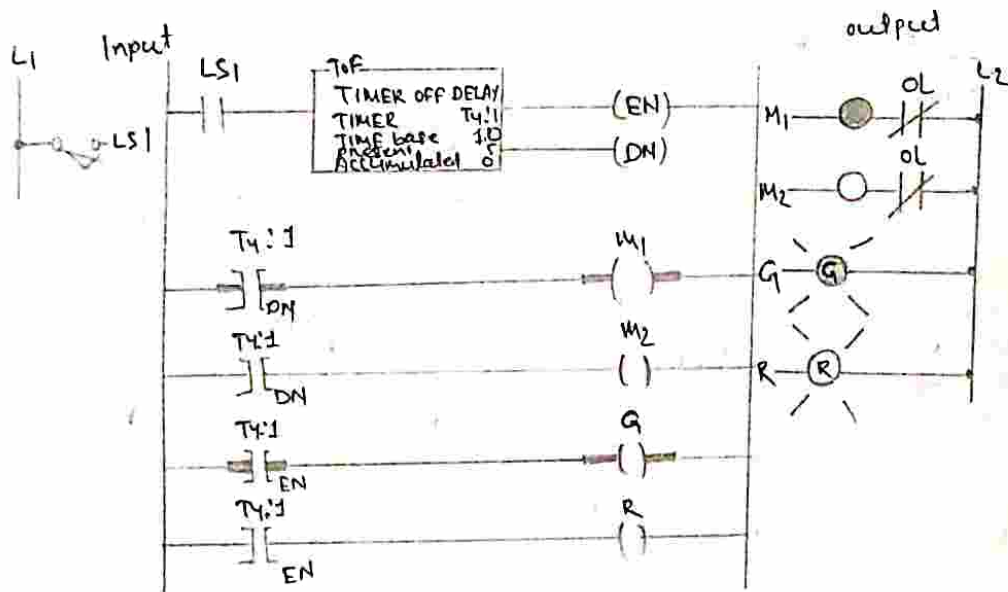 Input
output
L1
L2
LS1
LS1
TOF
TIMER OFF DELAY
TIMER T4:1
TIME base 1.0
present 5
Accumulated 0
(EN)
(DN)
M1
OL
M2
OL
T4:1
DN
M1
G
G
T4:1
DN
M2
R
R
T4:1
EN
G
T4:1
EN
R